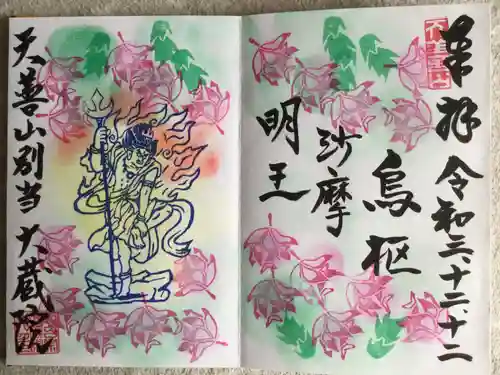 奉拝
令和三、十二、十二
烏枢
沙摩
明王
天善山別当大蔵院